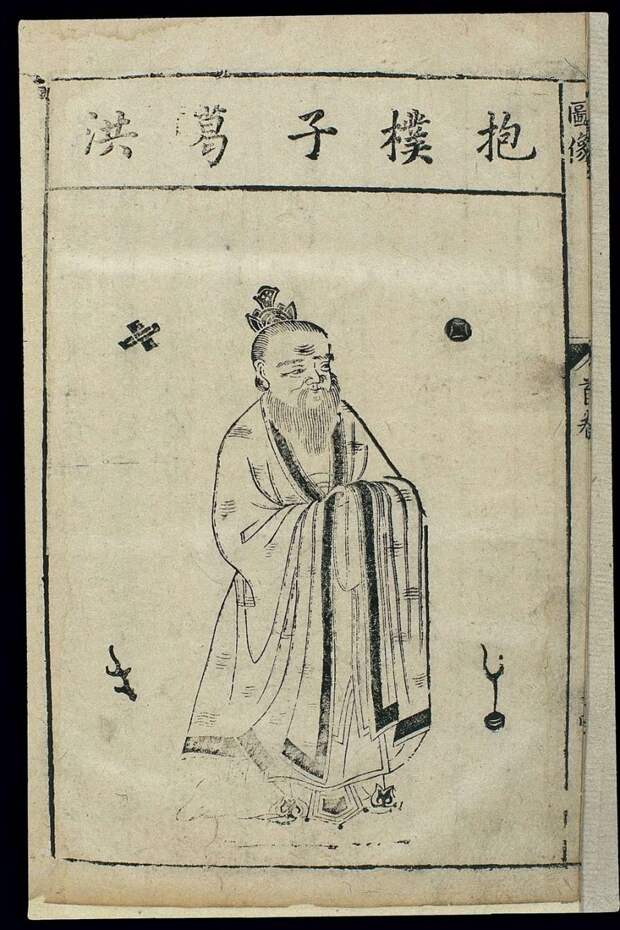 抱樸子葛洪
圖像
首卷